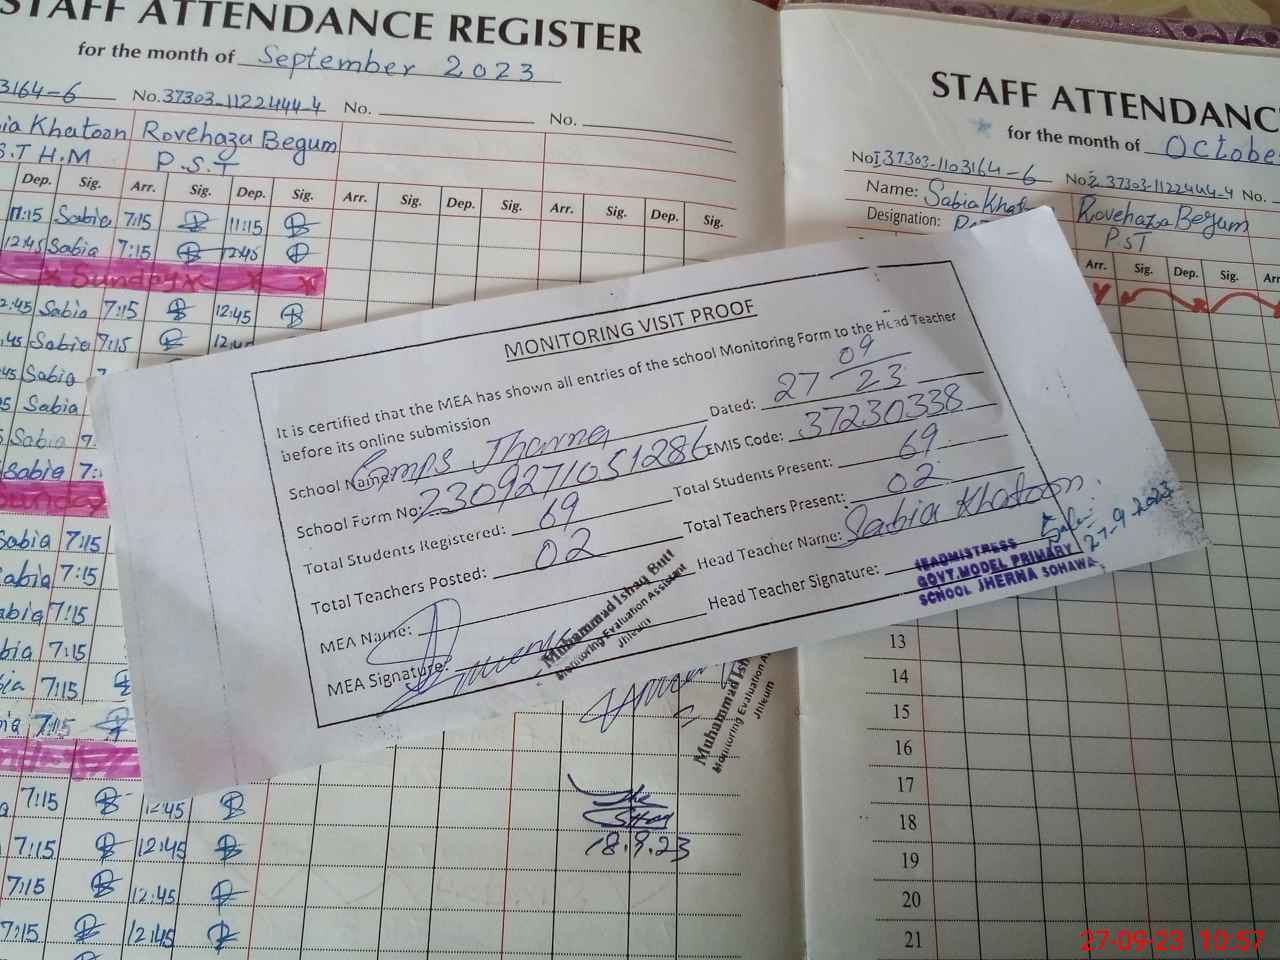 STAFF ATTENDANCE REGISTER
for the month of September 2023
3164-6 No. 37303-1122444-4 No. No.
ia Khatoon Rovehaza Begum
S.T H.M P.S.T
Dep. Sig. Arr. Sig. Dep. Sig. Arr. Sig. Dep. Sig. Arr. Sig. Dep. Sig.
11:15 Sabia 7:15 11:15
12:45 Sabia 7:15 12:45
Sunday
2:45 Sabia 7:15 12:45
:45 Sabia 7:15 12:4
45 Sabia 7
5 Sabia
Sabia 7.
Sabia 7:
Sunday
Sabia 7:15
abia 7:15
abia 7:15
bia 7:15
ia 7:15
ia 7:15
a 7:15 12:45
7:15 12:45
7:15 12:45
7:15 12:45
18.9.23
STAFF ATTENDANC
for the month of Octobe
No1 37303-1103164-6 No2 37303-1122444-4 No.
Name: Sabia Khat Rovehaza Begum
Designation: PST
Arr. Sig. Dep. Sig. Arr
13
14
15
16
17
18
19
20
21
MONITORING VISIT PROOF
It is certified that the MEA has shown all entries of the school Monitoring Form to the Head Teacher
before its online submission
Dated: 27 09 23
School Name: Gmps Jharna EMIS Code: 37230338
School Form No: 2309271051286 Total Students Present: 69
Total Students Registered: 69 Total Teachers Present: 02
Total Teachers Posted: 02 Head Teacher Name: Sabia Khatoon
MEA Name: Head Teacher Signature:
MEA Signature:
Muhammad Ishaq Butt
Monitoring Evaluation Assistant
Jhleum
27-9-2023
HEADMISTRESS
GOVT.MODEL PRIMARY
SCHOOL JHERNA SOHAWA
Muhammad Ish
Monitoring Evaluation A
Jhleum
27-09-23 10:57